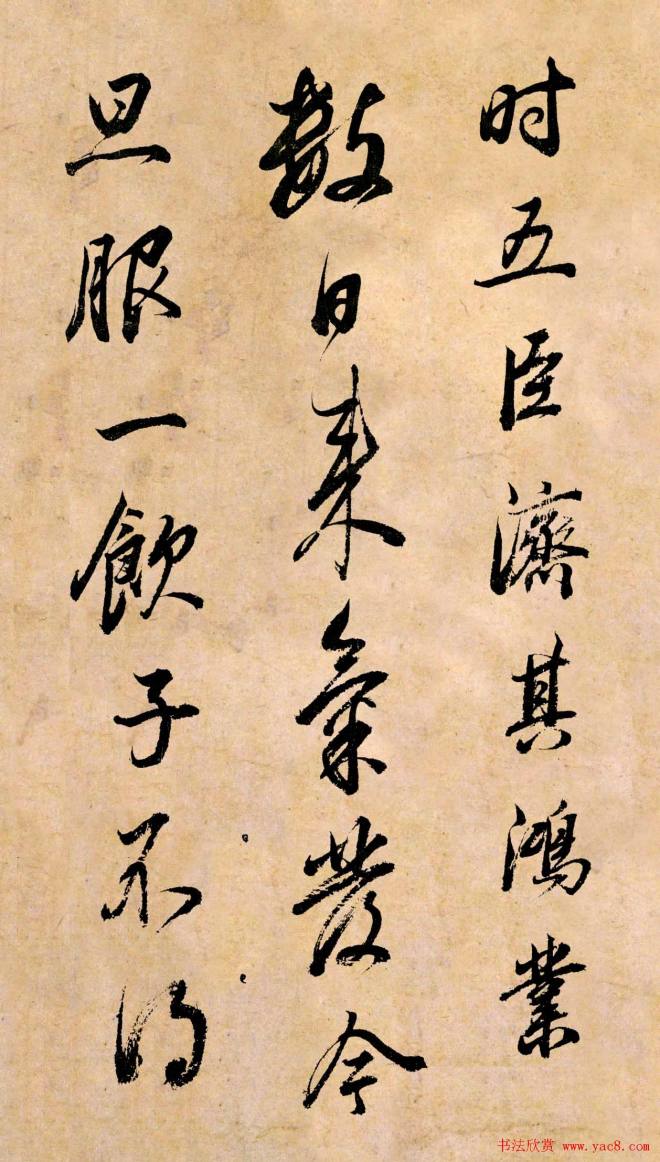 时五臣濟其鴻業
數日来氣發今
旦服一飲子不得
书法欣赏 www.yac8.com